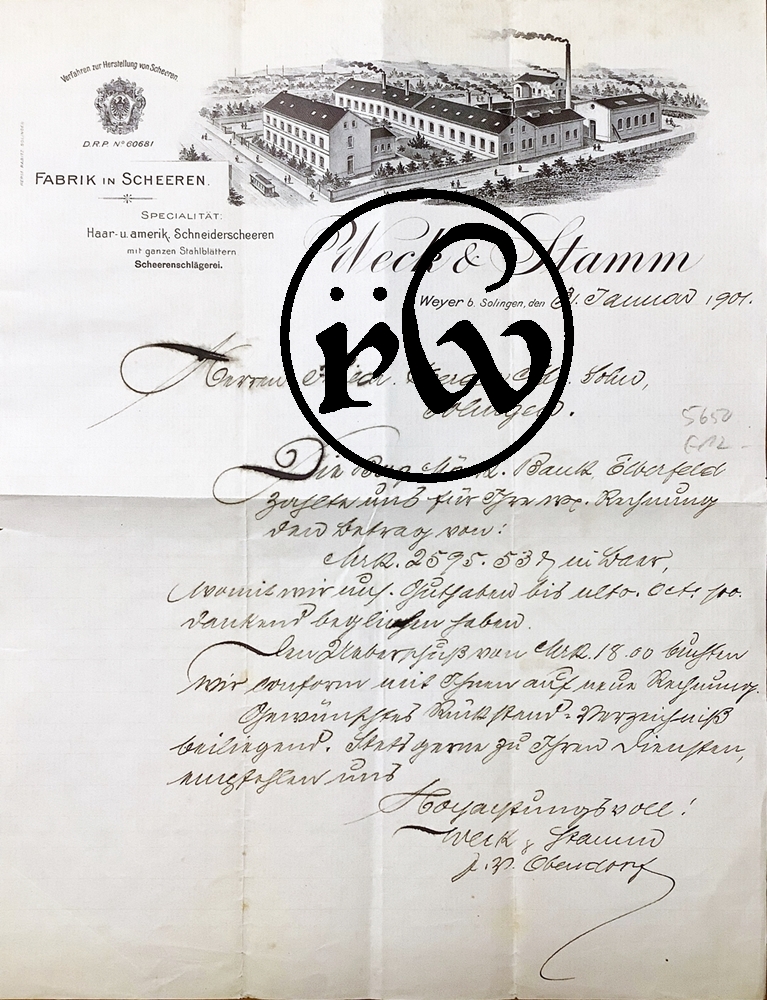 Verfahren zur Herstellung von Scheeren.
D.R.P. Nº 60681
FABRIK IN SCHEEREN.
SPECIALITÄT:
Haar- u. amerik. Schneiderscheeren
mit ganzen Stahlblättern
Scheerenschlägerei.
Weck & Stamm
Weyer b. Solingen, den 21. Januar 1901.
rw
Herren Friedr. Sohn,
Solingen.
5650
Die Berg. Märk. Bank, Elberfeld
zahlte uns für Ihre w. Rechnung
den Betrag von:
Mrk. 2595.53 in Baar,
womit wir uns. Guthaben bis ulto. Oct. 00.
dankend beglichen haben.
Den Ueberschuß von Mrk. 18.00 buchten
wir conform mit Ihnen auf neue Rechnung.
Gewünschtes Rückstand-Verzeichniß
beiliegend. Stets gerne zu Ihren Diensten,
empfehlen uns
Hochachtungsvoll!
Weck & Stamm
Obendorf